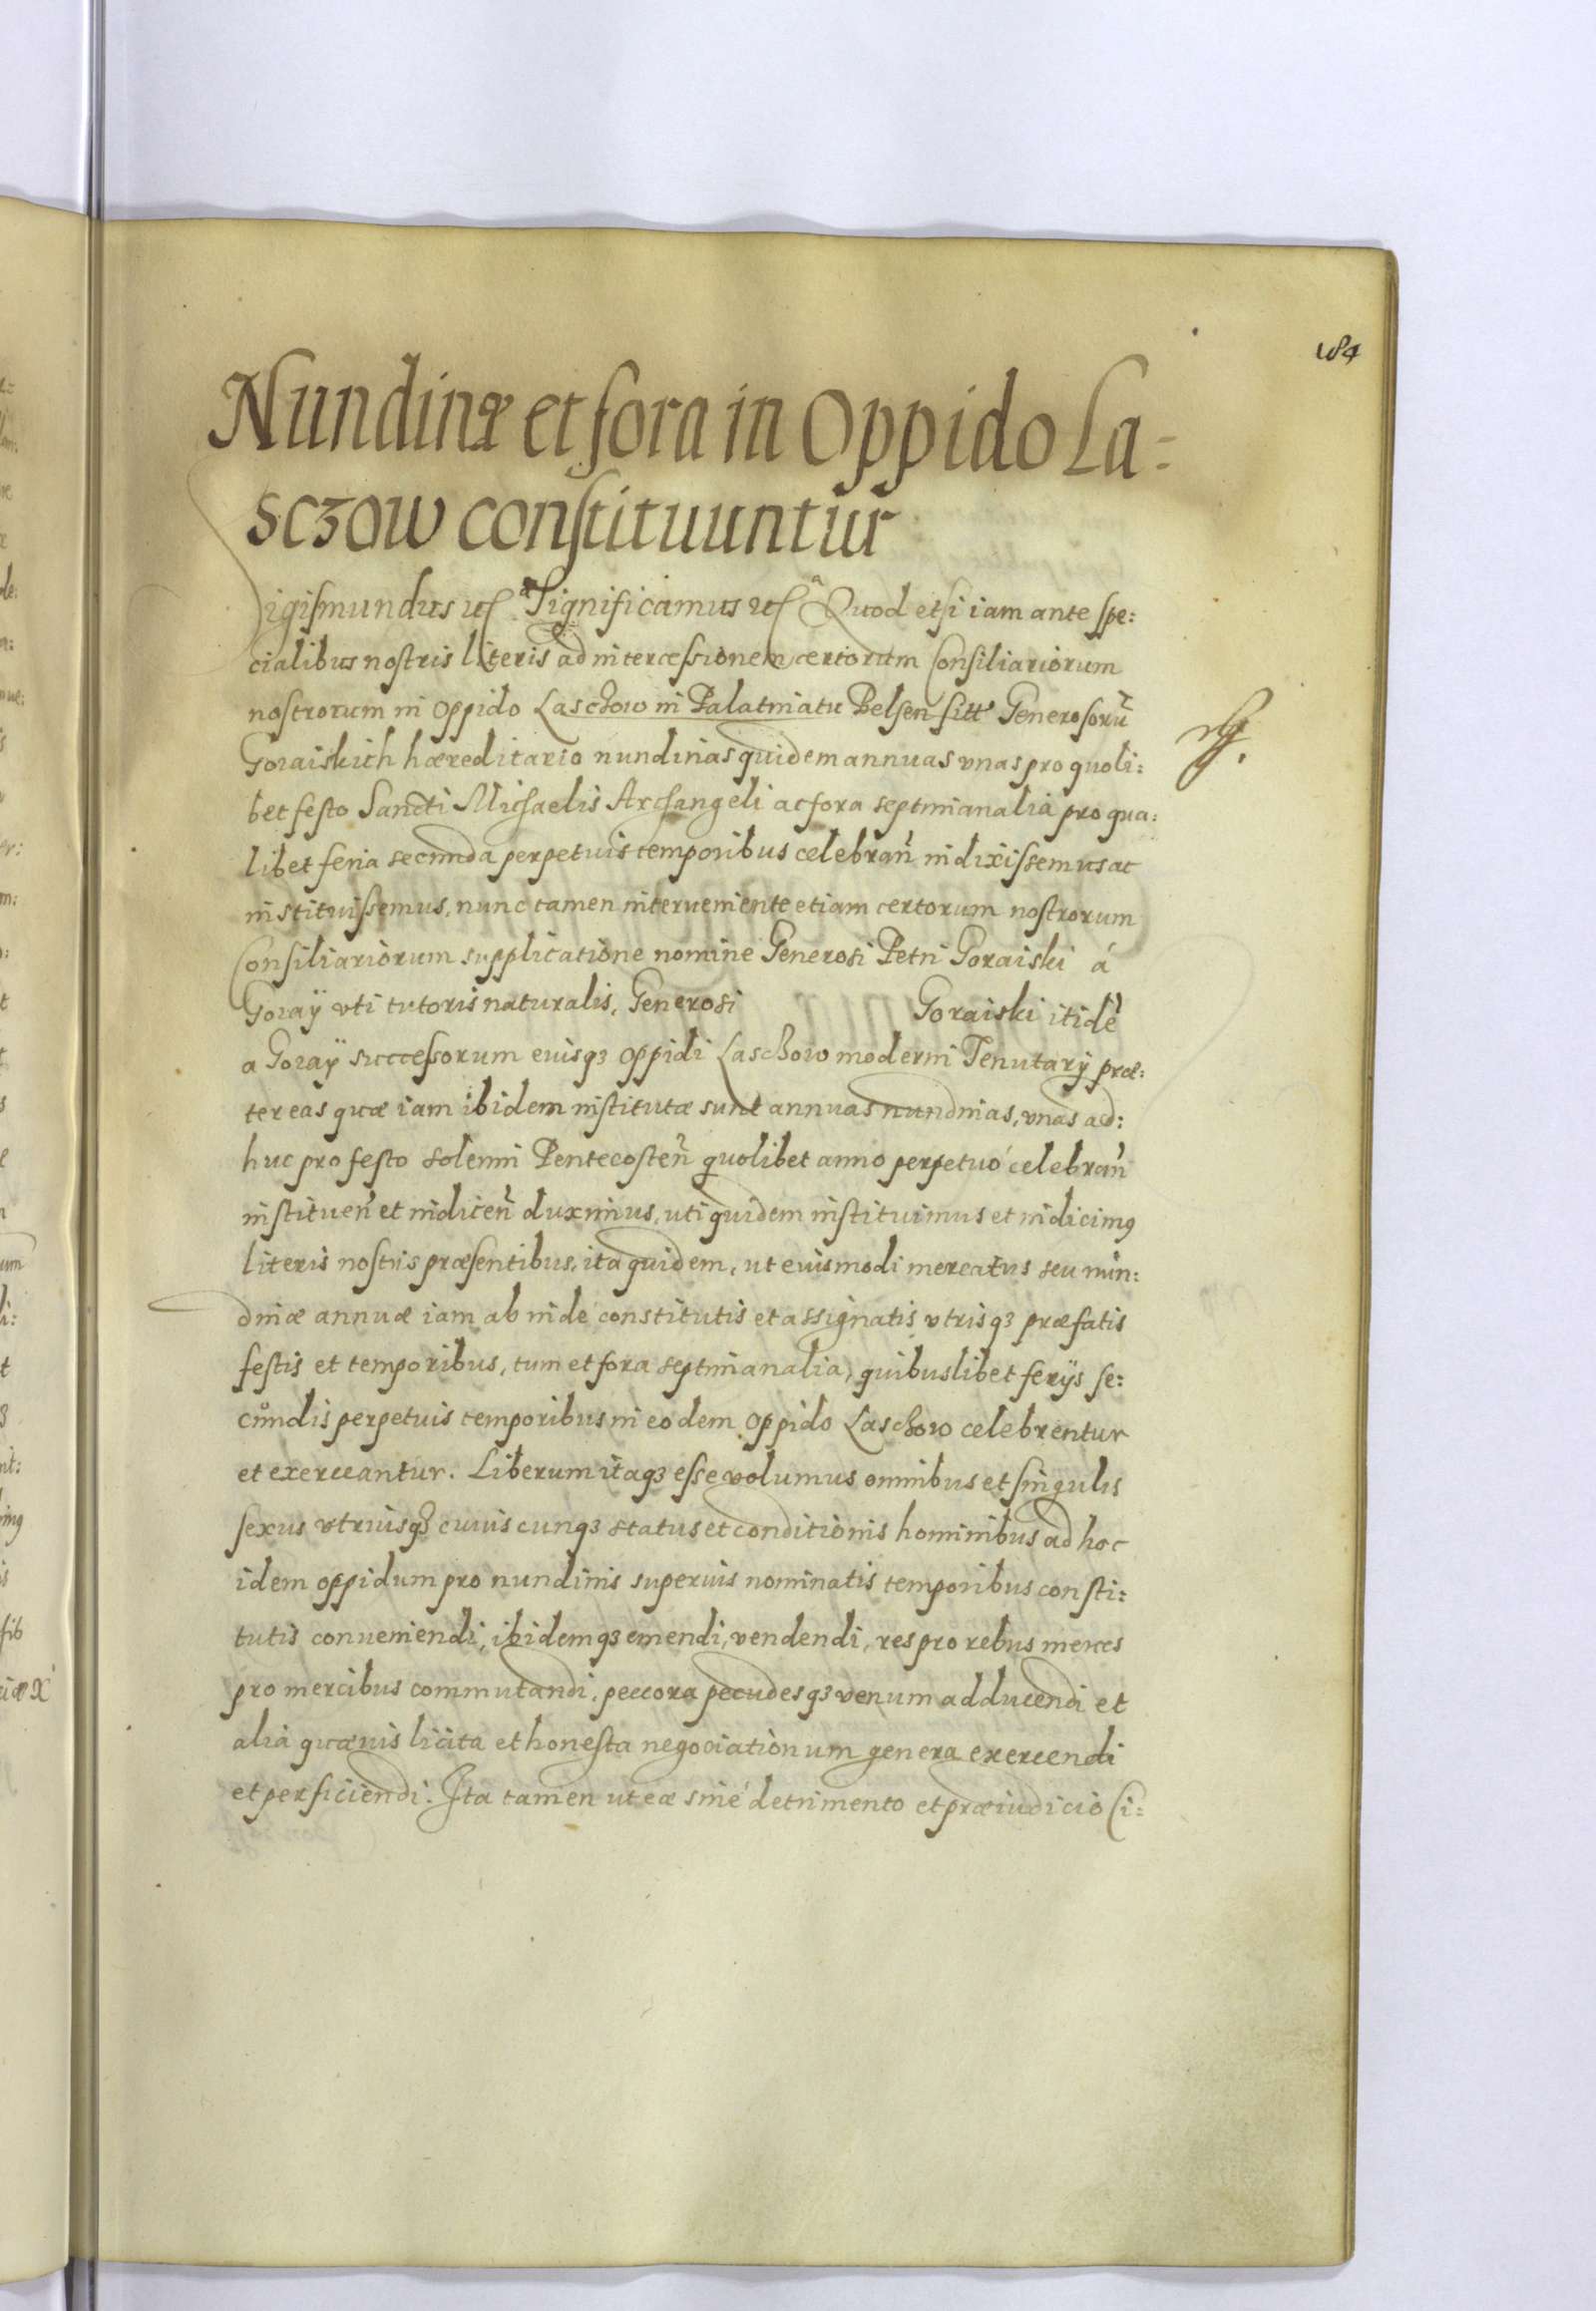 184
Nundinæ et fora in Oppido La=
sczow constituuntur
Sigismundus Significamus Quod etsi iam ante spe:
cialibus nostris literis ad intercessionem certorum Consiliariorum
nostrorum in oppido Lasczow in Palatinatu Belsen sitt Generosorũ
Goraiskich hæreditario nundinas quidem annuas vnas pro quoli:
bet festo Sancti Michaelis Archangeli ac fora septimanalia pro qua:
libet feria secunda perpetuis temporibus celebrañ indixissemus ac
instituissemus, nunc tamen interueniente etiam certorum nostrorum
Consiliariorum supplicatione nomine Generosi Petri Goraiski á
Goraÿ vti tutoris naturalis, Generosi Goraiski itidẽ
a Goraÿ successorum eiusqз oppidi Lasczow moderni Tenutarÿ præ:
ter eas quæ iam ibidem institutæ sunt annuas nundinas, vnas ad:
huc pro festo solenni Pentecosteñ quolibet anno perpetuó celebrañ
institueñ et indiceñ duximus, uti quidem instituimus et indicimꝰ
literis nostris præsentibus, ita quidem, ut euismodi mercatus seu nun:
dinæ annuæ iam ab inde constitutis et assignatis vtrisqз præfatis
festis et temporibus, tum et fora septimanalia, quibuslibet ferÿs se:
cundis perpetuis temporibus in eodem oppido Lasczow celebrentur
et exerceantur. Liberum itaqз esse volumus omnibus et singulis
sexus vtriusqз cuiuscunqз status et conditionis hominibus ad hoc
idem oppidum pro nundinis superius nominatis temporibus consti:
tutis conueniendi, ibidemqз emendi, vendendi, res pro rebus merces
pro mercibus commutandi, peccora pecudesqз venum adducendi et
alia quæuis licita et honesta negociationum genera exercendi
et perficiendi. Ita tamen ut eæ siné detrimento et præiudicio Ci=